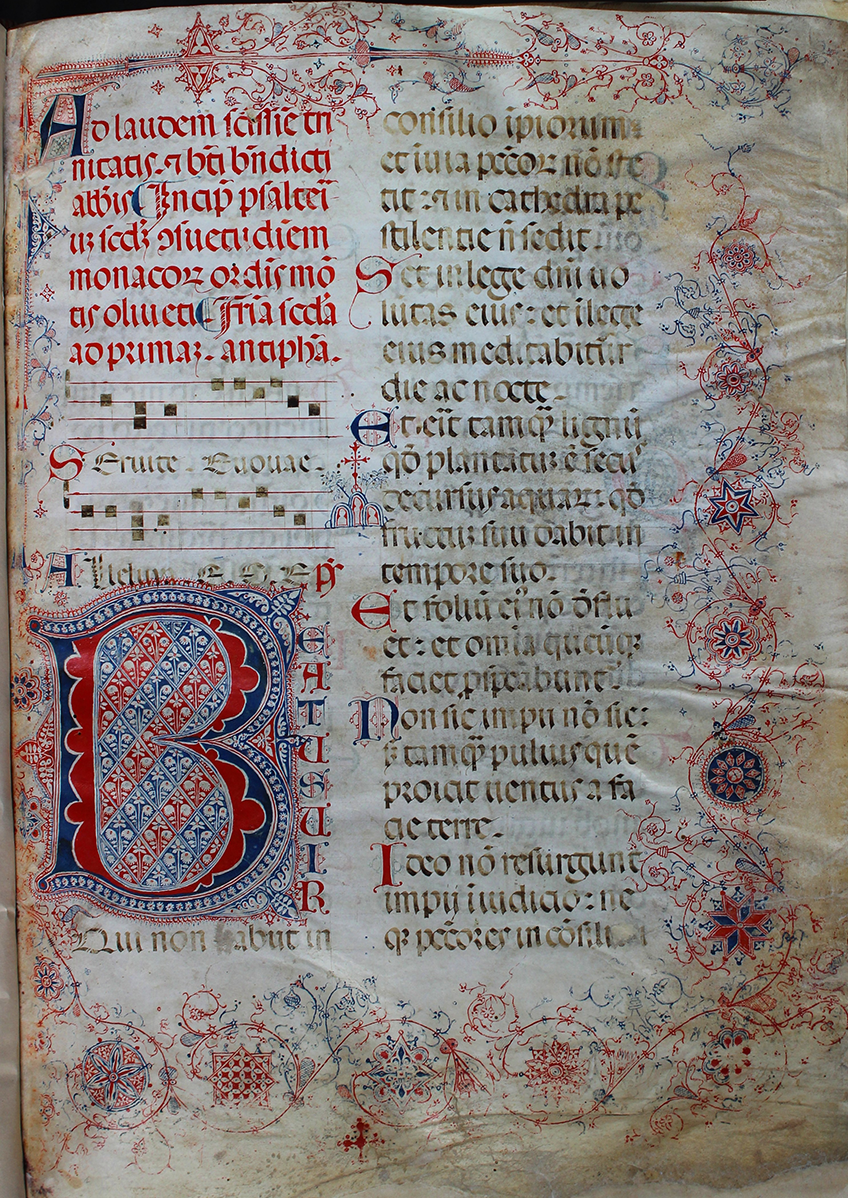 Ad laudem sc̄issīe tri
nitatis. ⁊ bt̄i bn̄dicti
abb̄is Incip̄ psalteī
uʒ scd̄ʒ ↄsuetudīem
monacoꝝ ordīs mō
tis oliueti Fr̄ia scd̄a
ad primaʒ. antiph̄a.
Seruite. Euouae.
Alleluya. E. V. E ps̄
BEATUS UIR
Qui non habiit in
consilio īpiorum ⁊
et ī uia pcc̄oꝝ nō ste
tit ⁊ in cathedra pe
stilentie n̄ sedit
Set in lege dn̄i uo
lūtas eius: et ī lege
eius meditabitur
die ac nocte.
Et erit tamqꝫ lignū
qd̄ plantatuʒ ē secus
decursus aquaꝝ: qd̄
fructuʒ suū dabit in
tempore suo.
Et foliū eiꝰ nō d̄flu
et: et omīa quecūqꝫ
faciet ꝓspabunt᷑
Non sic impii nō sic:
sꝫ tamqꝫ puluis quē
proicit uentus a fa
cie terre.
Ideo nō resurgunt
impii ī iudicio: ne
qꝫ pcc̄ores in cōsilio